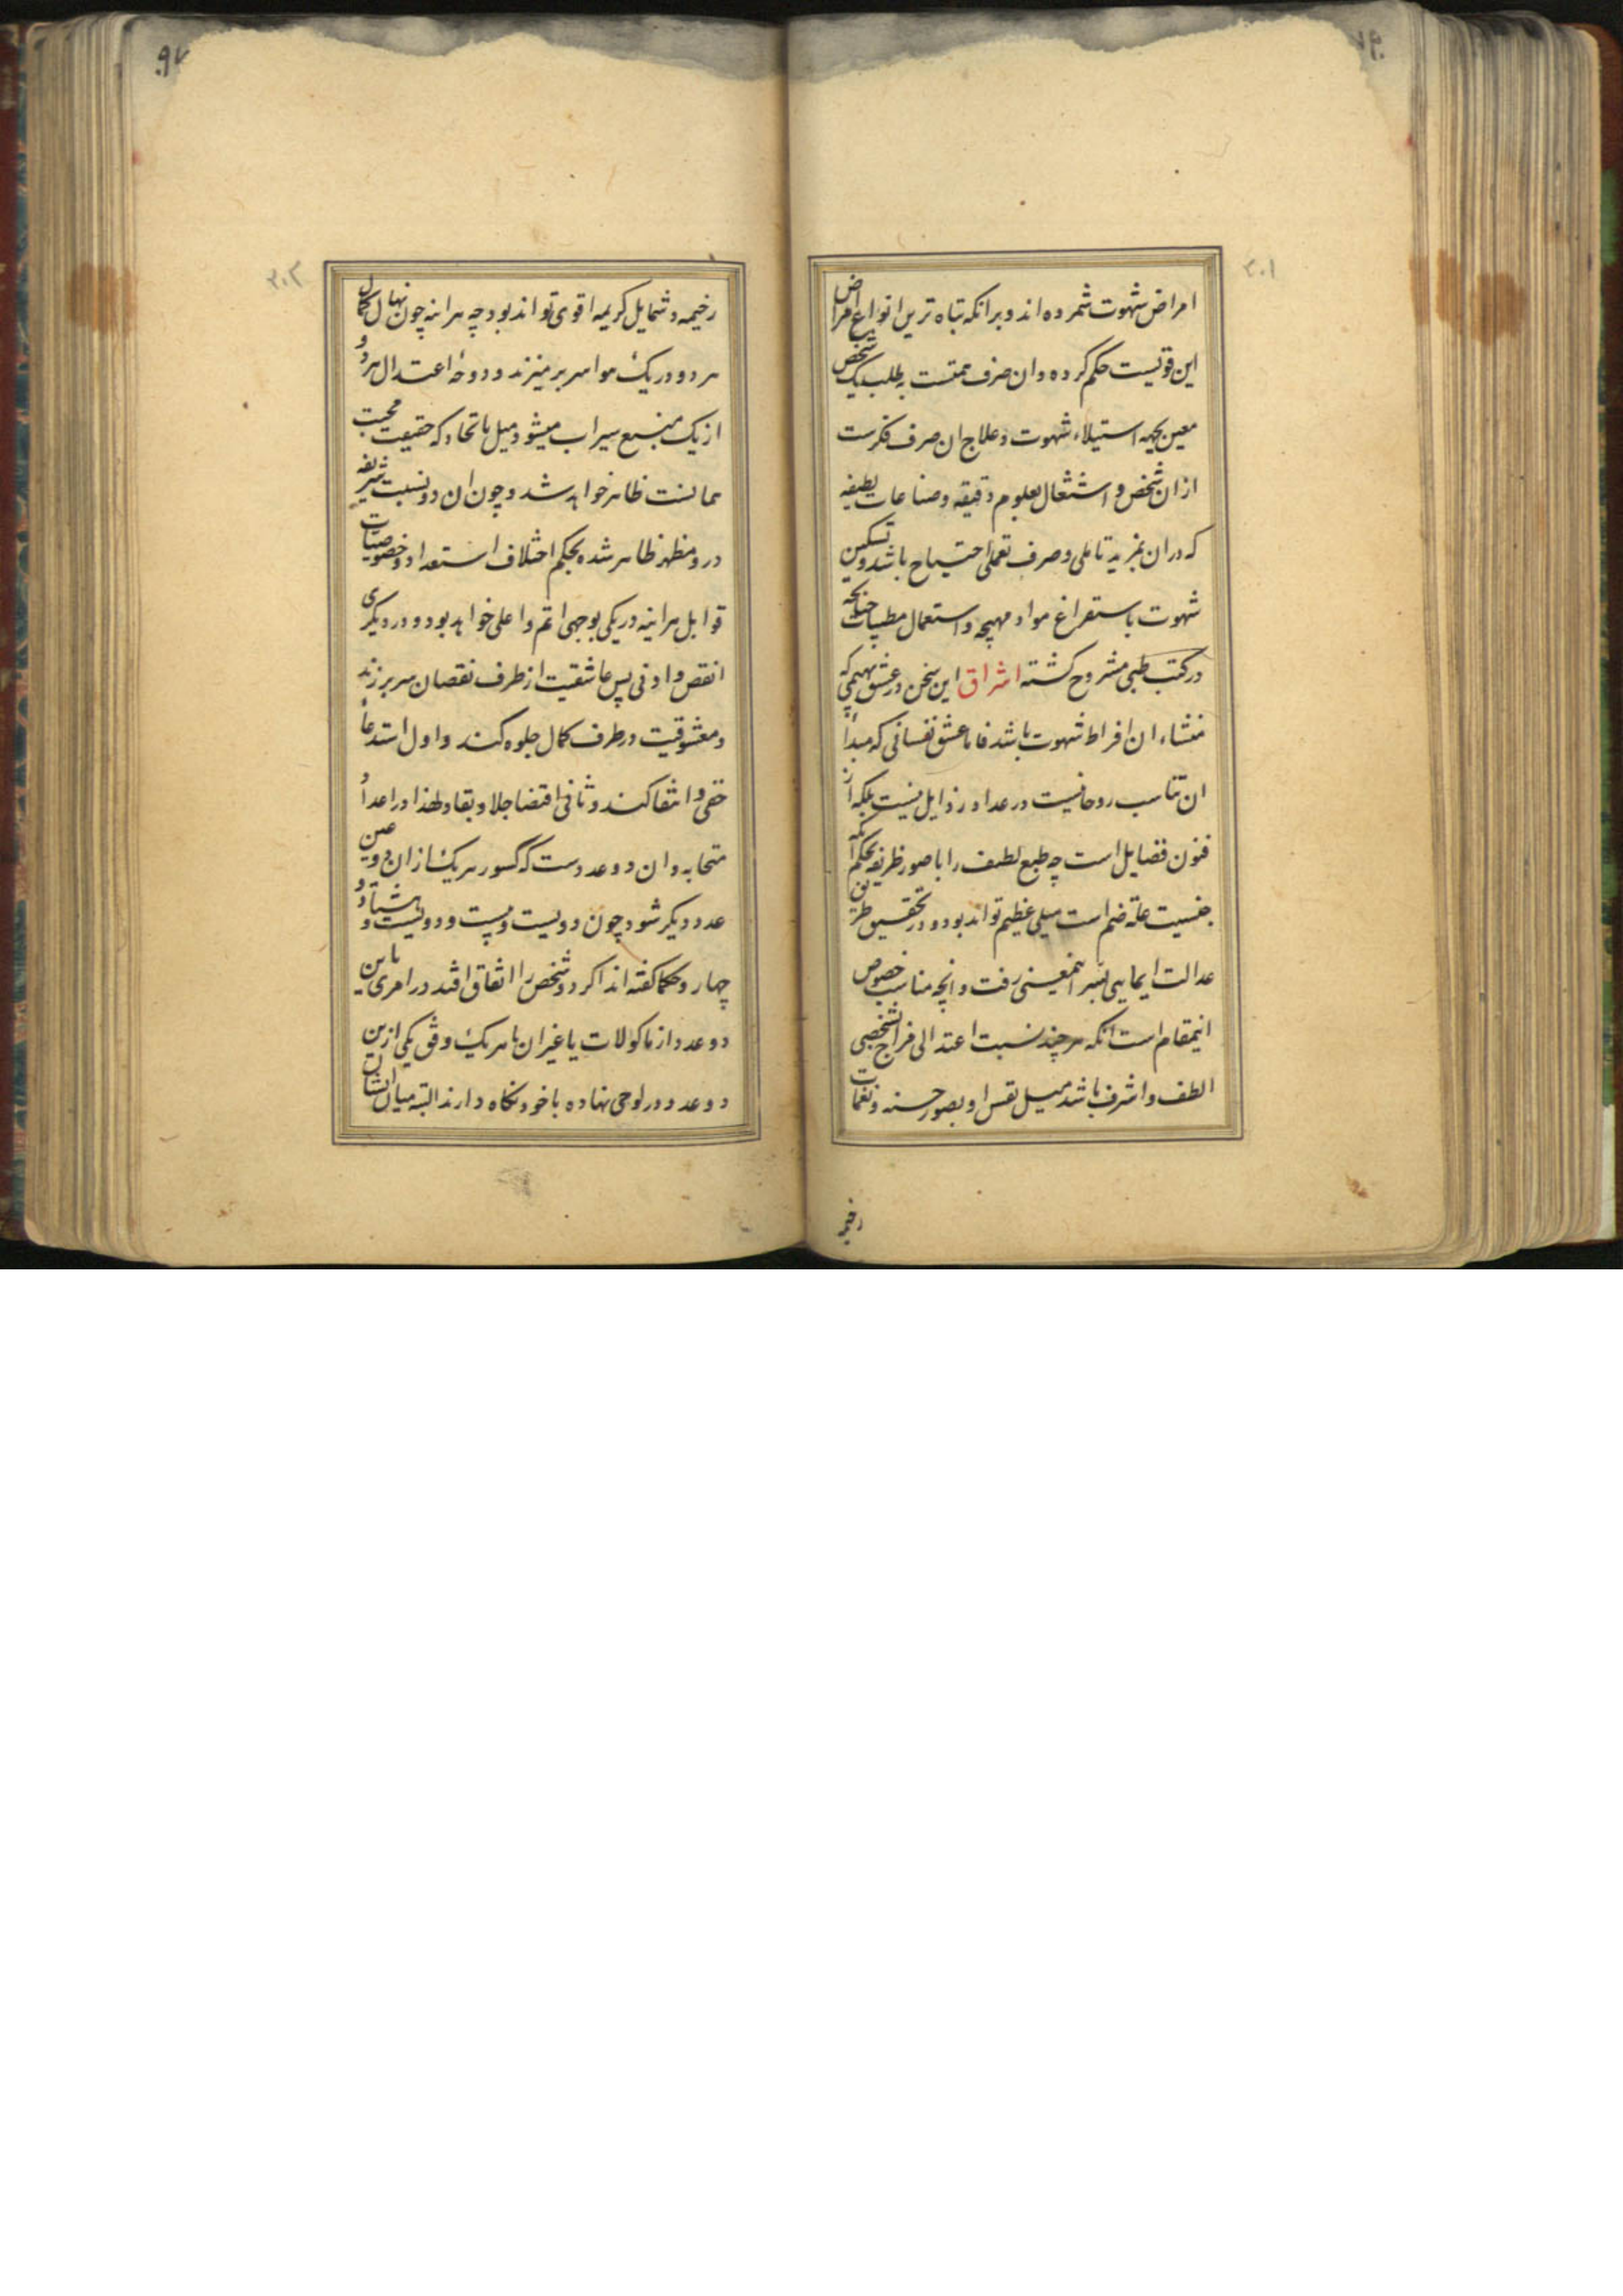 ۲۰۱
امراض شهوت شمرده اند و برانکه تباه ترین انواع امراض
این قوتیست حکم کرده و ان صرف همتست بطلب یک شخص
معین بجهه استیلاء شهوت و علاج ان صرف فکرست
ازان شخص و اشتغال بعلوم دقیقه و صناعات لطیفه
که دران بمزید تاملی و صرف تعملی احتیاج باشد و تسکین
شهوت باستفراغ مواد مهیجه و استعمال مطبیات چنانچه
در کتب طبی مشروح کشته اشراق این سخن در عشق بهیمی که
منشاء ان افراط شهوت باشد فاما عشق نفسانی که مبدأ
ان تناسب روحانیست در عداد رذایل نیست بلکه از
فنون فضایل است چه طبع لطیف را با صور ظریفه بحکم انکه
جنسیت علة ضم است میلی عظیم تواند بود و در تحقیق طریق
عدالت ایمایی بسر اینمعینی رفت و انچه مناسب خصوص
اینمقام است انکه هرچند نسبت اعتدالی مزاج شخصی
الطف و اشرف باشد میل نفس او بصور حسنه و نغمات
رخیمه
۲۰۲
رخیمه و شمایل کریمه اقوی تواند بود چه هراینه چون نهال کمال
هر دو در یک هوا سر برمیزند و دوحهٔ اعتدال هر دو
از یک منبع سیراب میشود میل باتحاد که حقیقت محبت
همانست ظاهر خواهد شد و چون ان دو نسبت شریفه
در دو مظهر ظاهر شده بحکم اختلاف استعداد و خصوصیات
قوابل هراینه در یکی بوجهی اتم و اعلی خواهد بود و در دیکری
انقص و ادنی پس عاشقیت از طرف نقصان سر برزند
و معشوقیت در طرف کمال جلوه کند و اول استدعاء
خفی و انتفا کند و ثانی اقتضا جلا و بقا و لهذا در اعداد
متحابه و ان دو عددست که کسور هر یک ازان دو عین
عدد دیکر شود چون دویست و بیست و دویست و هشتاد و
چهار و حکما کفته اند اکر دو شخص را اتفاق افتد در امری باین
دو عدد از ماکولات یا غیر ان با هر یک وفق یکی ازین
دو عدد در لوحی نهاده با خود نکاه دارند البته میان ایشان